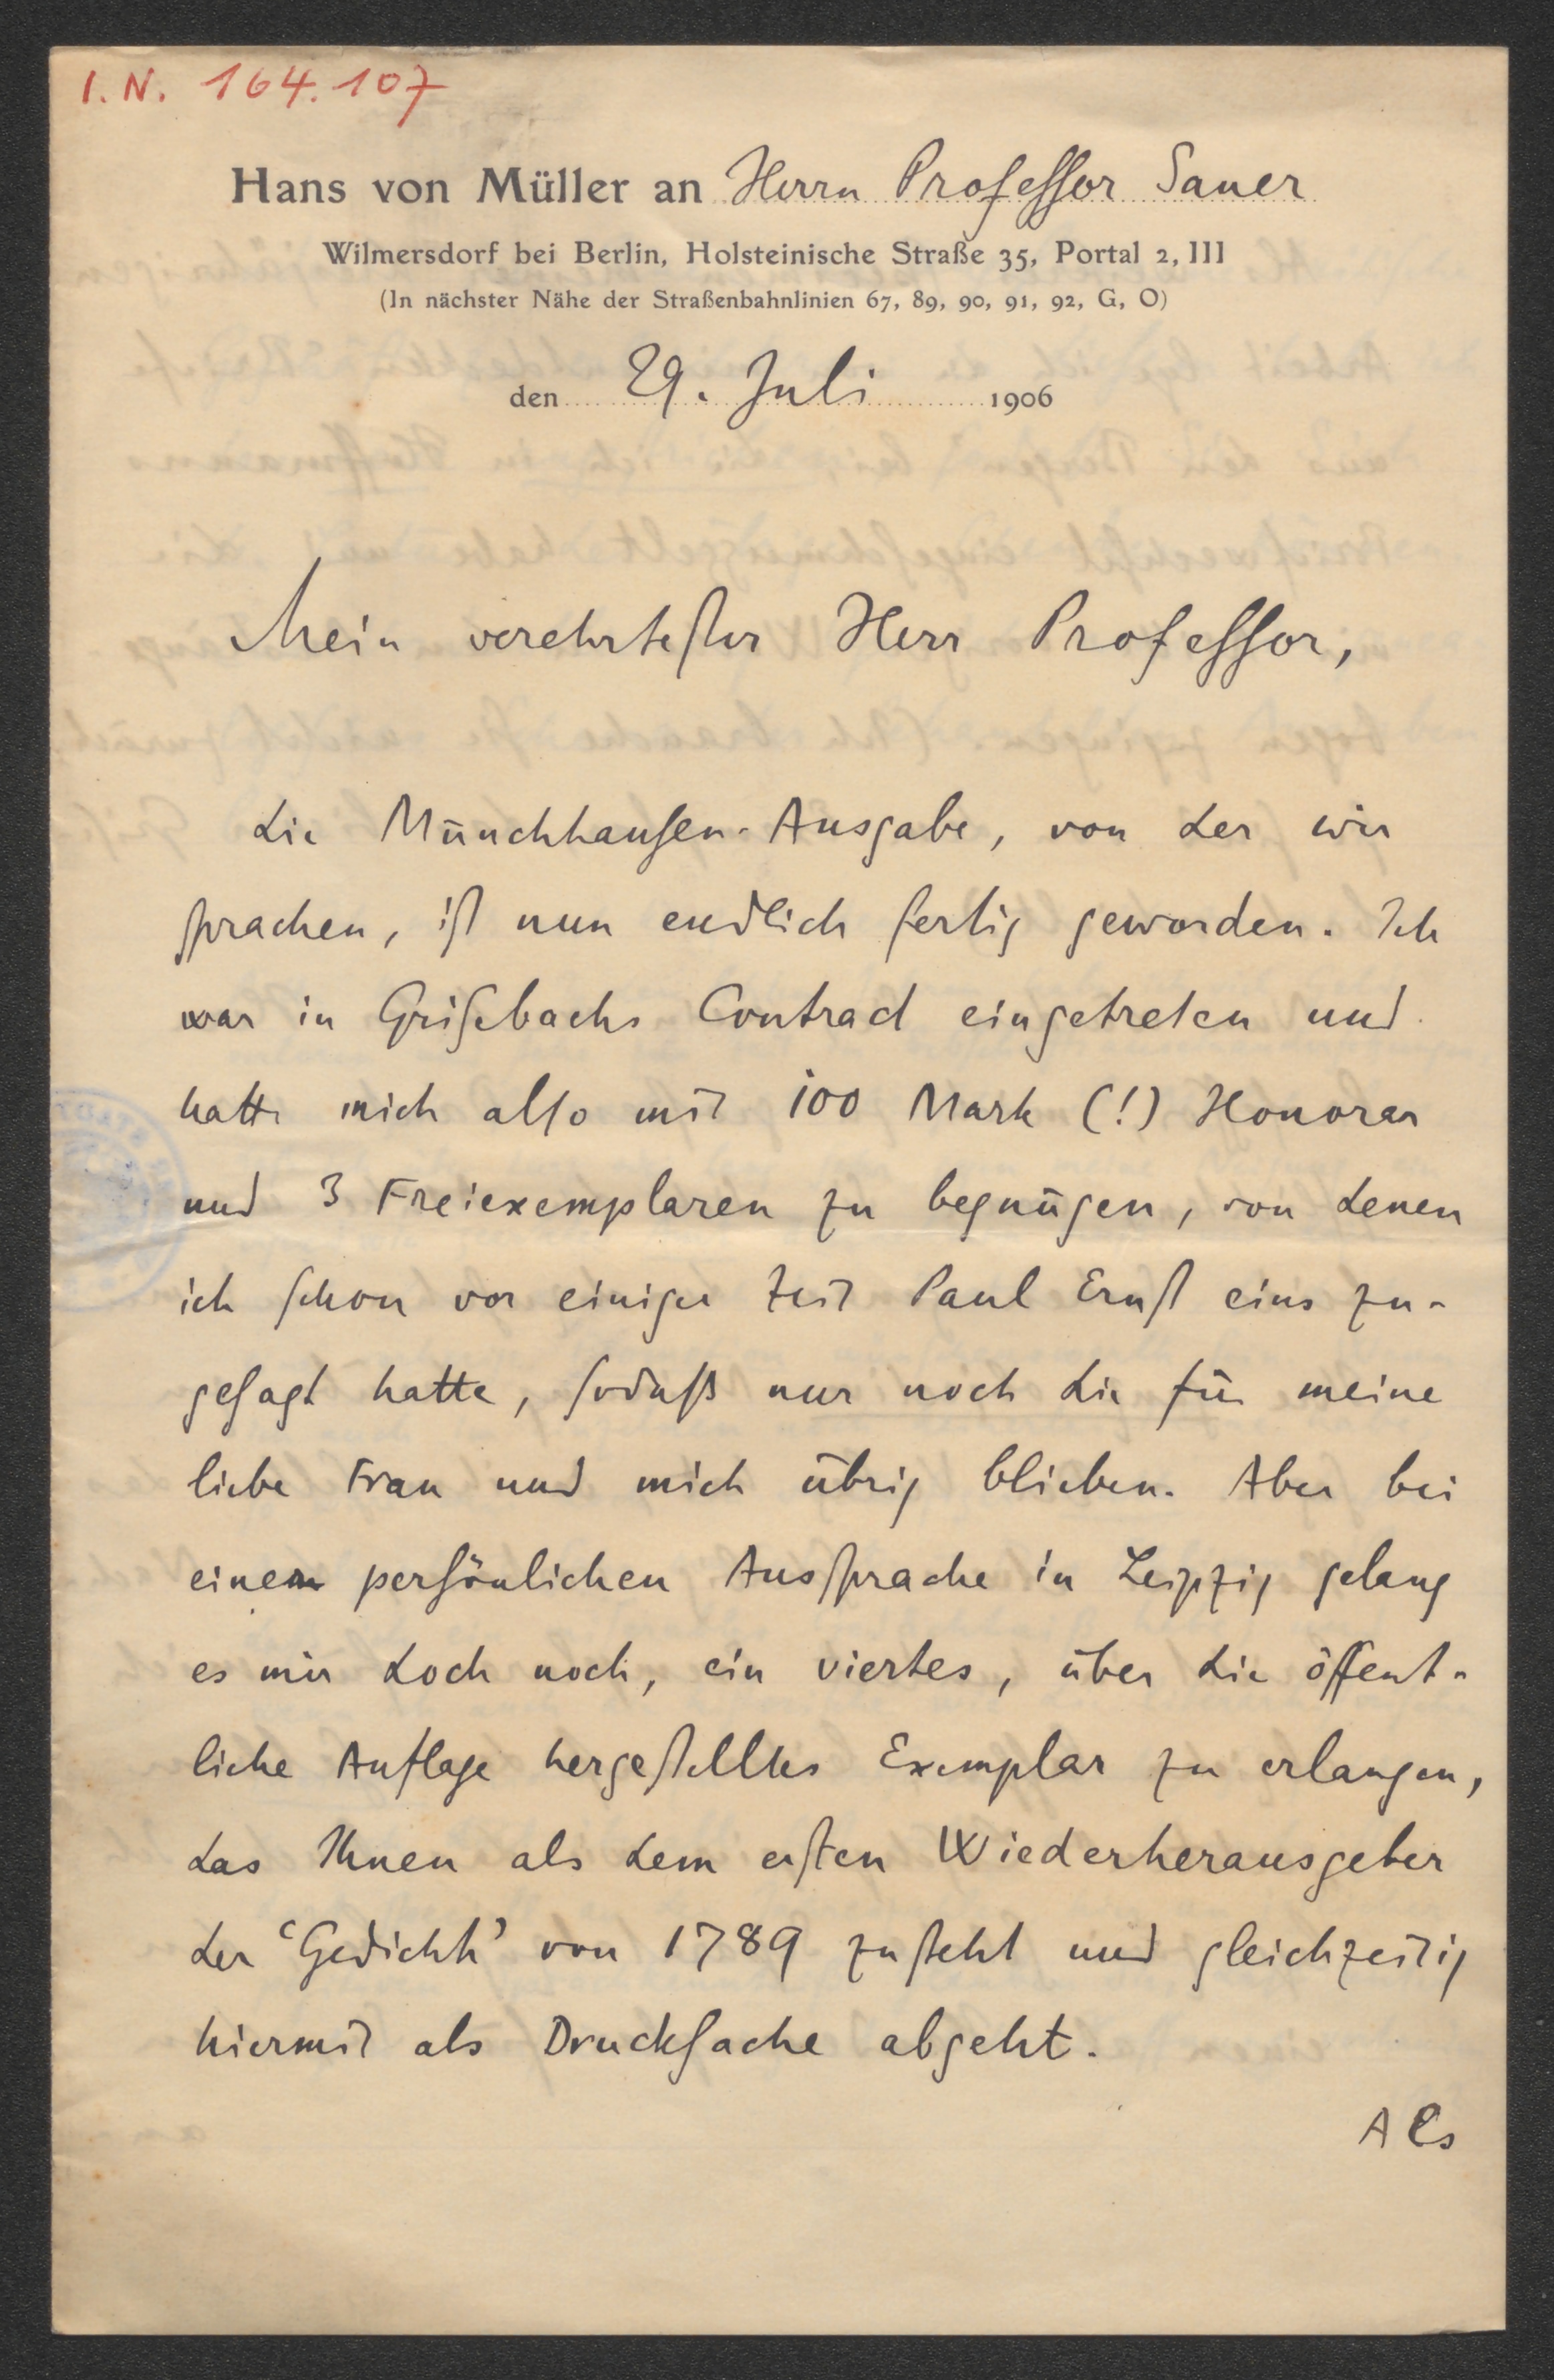 I. N. 164.107
Hans von Müller an Herrn Professor Sauer
Wilmersdorf bei Berlin, Holsteinische Straße 35, Portal 2, III
(In nächster Nähe der Straßenbahnlinien 67, 89, 90, 91, 92, G, O)
den 29. Juli 1906
Mein verehrtester Herr Professor,
die Münchhausen-Ausgabe, von der wir
sprachen, ist nun endlich fertig geworden. Ich
war in Grisebachs Contract eingetreten und
hatte mich also mit 100 Mark (!) Honorar
und 3 Freiexemplaren zu begnügen, von denen
ich schon vor einiger Zeit Paul Ernst eins zu-
gesagt hatte, sodass nur noch die für meine
liebe Frau und mich übrig blieben. Aber bei
einer persönlichen Aussprache in Leipzig gelang
es mir doch noch, ein viertes, über die öffent-
liche Auflage hergestelltes Exemplar zu erlangen,
das Ihnen als dem ersten Wiederherausgeber
der ‘Gedichte’ von 1789 zusteht und gleichzeitig
hiermit als Drucksache abgeht.
Als